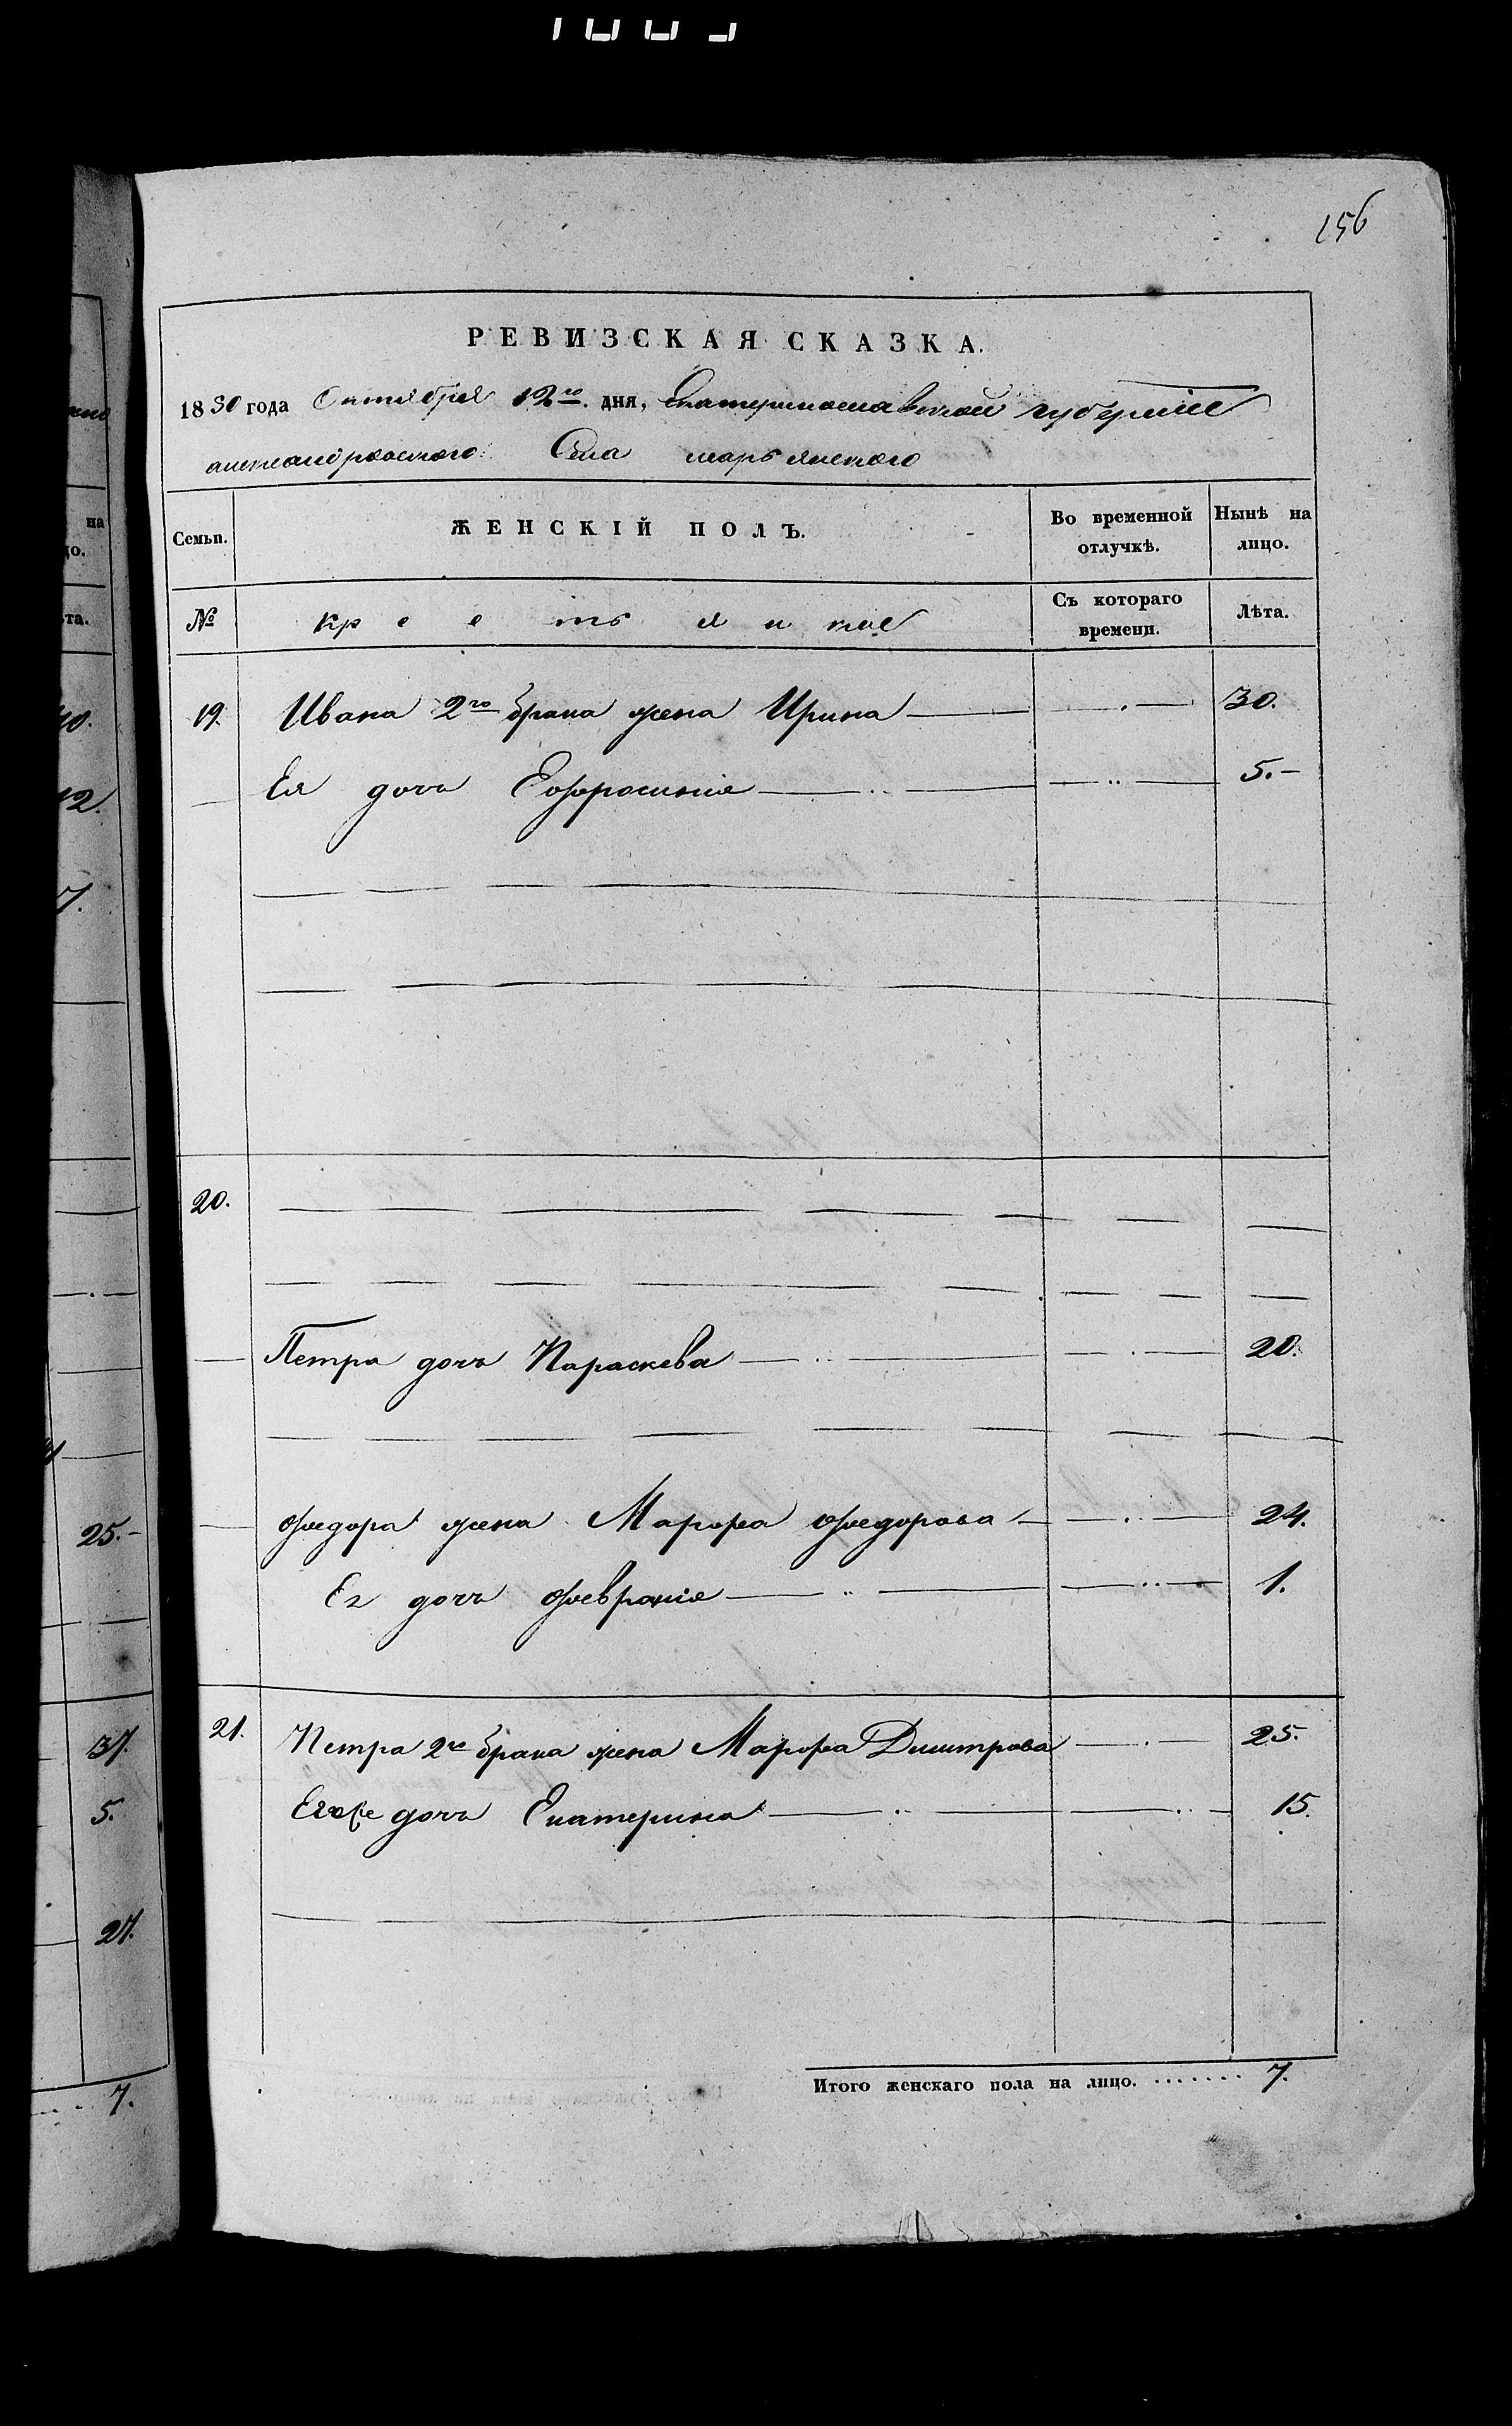 156
РЕВИЗСКАЯ СКАЗКА.
1850 года Октября 12го. дня, Екатеринославской губернiи
александровского Села марьянского
Семьи. ЖЕНСКIЙ ПОЛЪ. Во временной отлучкѣ. Нынѣ на лицо.
№ Съ котораго времени. Лѣта.
19. Ивана 2го брака жена Ирина 30.
Ея дочь Ефросинiя 5.
20.
Петра дочь Параскева 20.
Федора жена Марфа Федорова 24.
Ея дочь Феврания 1.
21. Петра 2го брака жена Марфа Дмитрова 25.
Егоже дочь Екатерина 15.
Итого женскаго пола на лицо. ....... 7.
на
цо.
та.
40.
12.
7.
25.
37.
5.
27.
7.